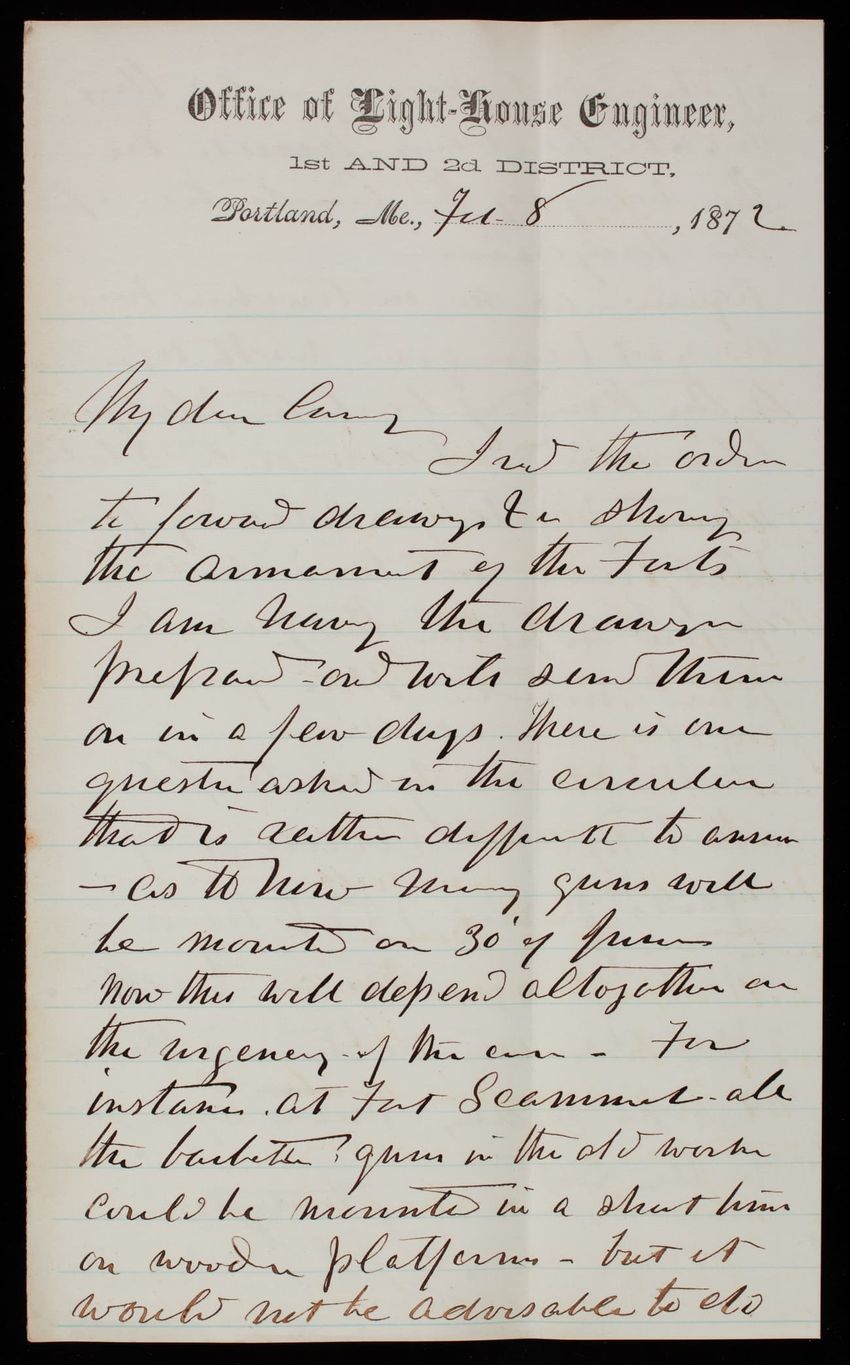 Office of Light-House Engineer,
1st AND 2d DISTRICT,
Portland, Me., Feb. 8, 1872.
My dear Casey
I recd the order
to forward drawings &c showing
the armament of the Forts
I am having the drawings
prepared - and will send them
on in a few days. There is one
question asked in the circular
that is rather difficult to answer
- as to how many guns will
be mounted on 30 of June
now this will depend altogether on
the urgency of the case - For
instance at Fort Scammel - all
the barbette guns in the old work
could be mounted in a short time
on wooden platforms - but it
would not be advisable to do